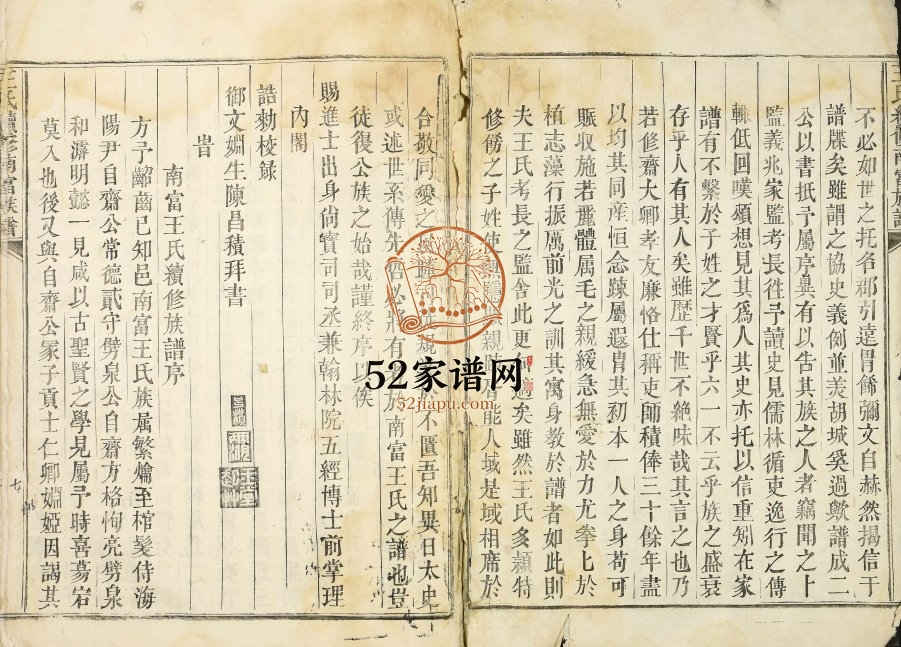 不必如世之托名郡引遠胄餙彌文自赫然揭信于
譜牒矣雖謂之協史義例並羙胡城奚過歟譜成二
公以書抵予屬序且有以告其族之人者竊聞之上
監義兆家監考長徃予讀史見儒林循吏逸行之傳
輙低回嘆頫想見其爲人其史亦托以信重矧在家
譜有不繫於子姓之才賢乎六一不云乎族之盛衰
存乎人有其人矣雖歷千世不絶味哉其言之也乃
若修齋大卿孝友廉恪仕稱吏師積俸三十餘年盡
以均其同產恒念踈屬遐胄其初本一人之身苟可
賑収施若
體属毛之親緩急無愛於力尤拳匕於
植志藻行振厲前光之訓其寓身教於譜者如此則
夫王氏考長之監舍此更
矣雖然王氏多頴特
修髣之子姓
能人域是域相席於
合敬同愛之
不匱吾知異日太史
或述世系傳先
必將有
於南富王氏之譜也豈
徒復公族之始哉謹終序以俟
賜進士出身尚寶司司丞兼翰林院五經博士前掌理
内閣
誥勑校録
御文婣生陳昌積拜書
旹
南富王氏續修族譜序
方予齠齒已知邑南富王氏族属繁爚至棺髮侍海
陽尹自齋公常德貳守劈泉公自齋方格恂亮劈泉
和澼明懿一見咸以古聖賢之學見属予時喜蒻宕
莫入也後又與自齋公冢子貢士仁卿婣婭因謁其
王氏續修南富族譜
七
王氏續修南富族譜
52家谱网
52jiapu.com